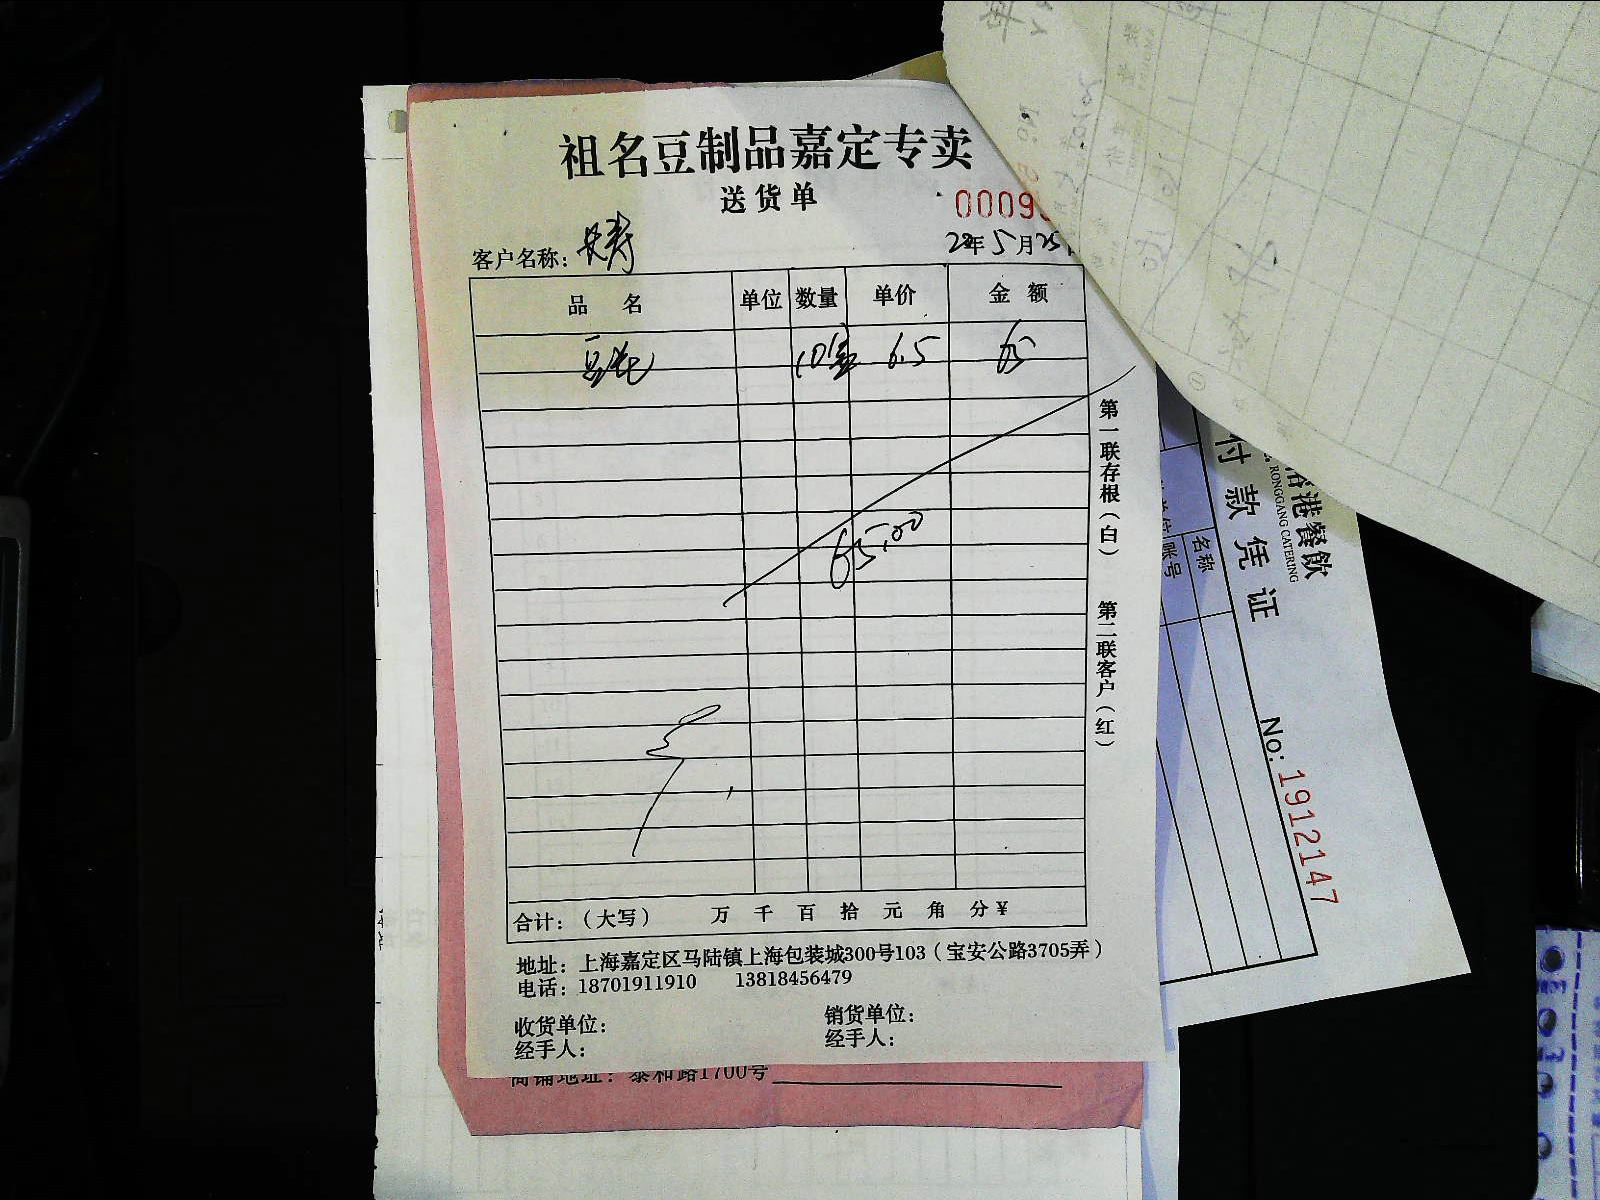 祖名豆制品嘉定专卖
送货单
0009
客户名称：长寿
年5月25
品名 单位 数量 单价 金额
豆花 10盒 6.5 65
65.00
第一联存根（白） 第二联客户（红）
合计：（大写） 万 千 百 拾 元 角 分￥
地址：上海嘉定区马陆镇上海包装城300号103（宝安公路3705弄）
电话：18701911910 13818456479
收货单位： 销货单位：
经手人： 经手人：
商铺地址：泰和路1700号
港餐飲
RONGGANG CATERING
付款凭证
名称
账号
No: 1912147